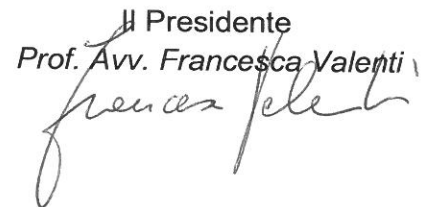 Il Presidente
Prof. Avv. Francesca Valenti
Francesca Valenti